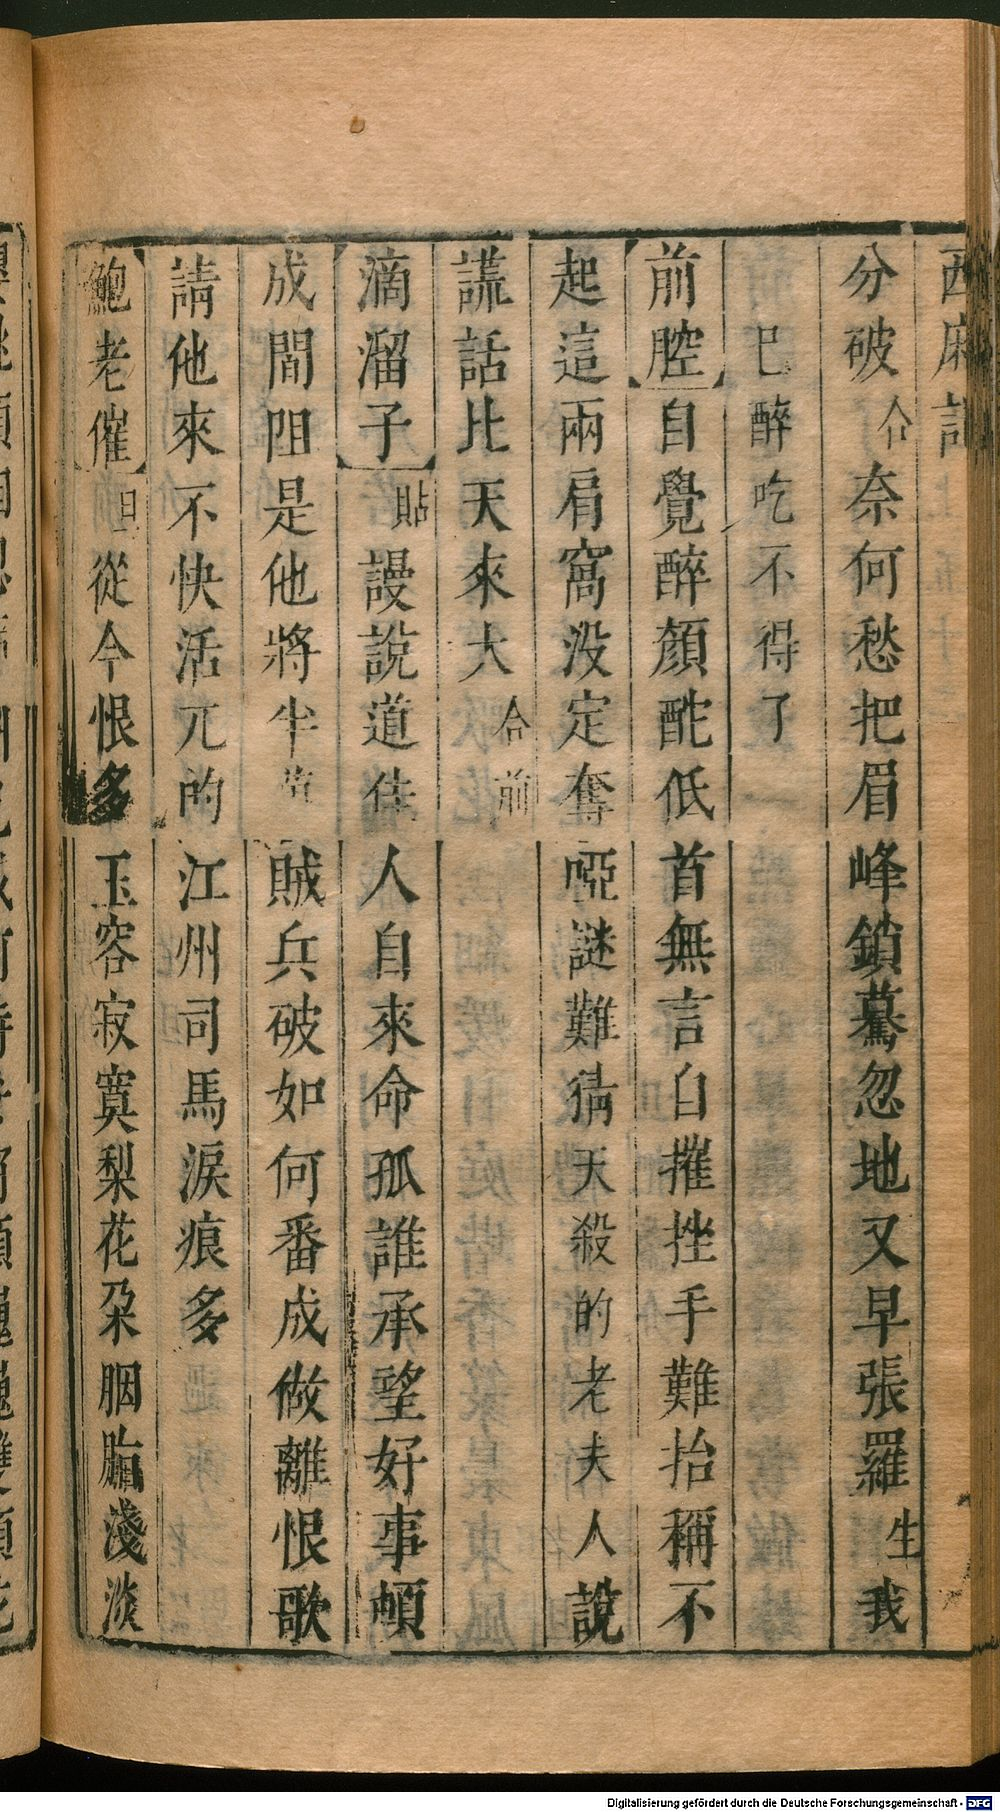 西廂記
分破合奈何愁把眉峰鎖驀忽地又早張羅生我
已醉吃不得了
前腔自覺醉顏酡低首無言自摧挫手難抬稱不
起這兩肩窩没定奪啞謎難猜天殺的老夫人說
謊話比天來大合前
滴溜子貼謾說道佳人自來命孤誰承望好事頓
成間阻是他將半萬賊兵破如何番成做離恨歌
請他來不快活兀的江州司馬淚痕多
鮑老催旦從今恨多玉容寂寞梨花朶胭脂淺淡
Digitalisierung gefördert durch die Deutsche Forschungsgemeinschaft - DFG